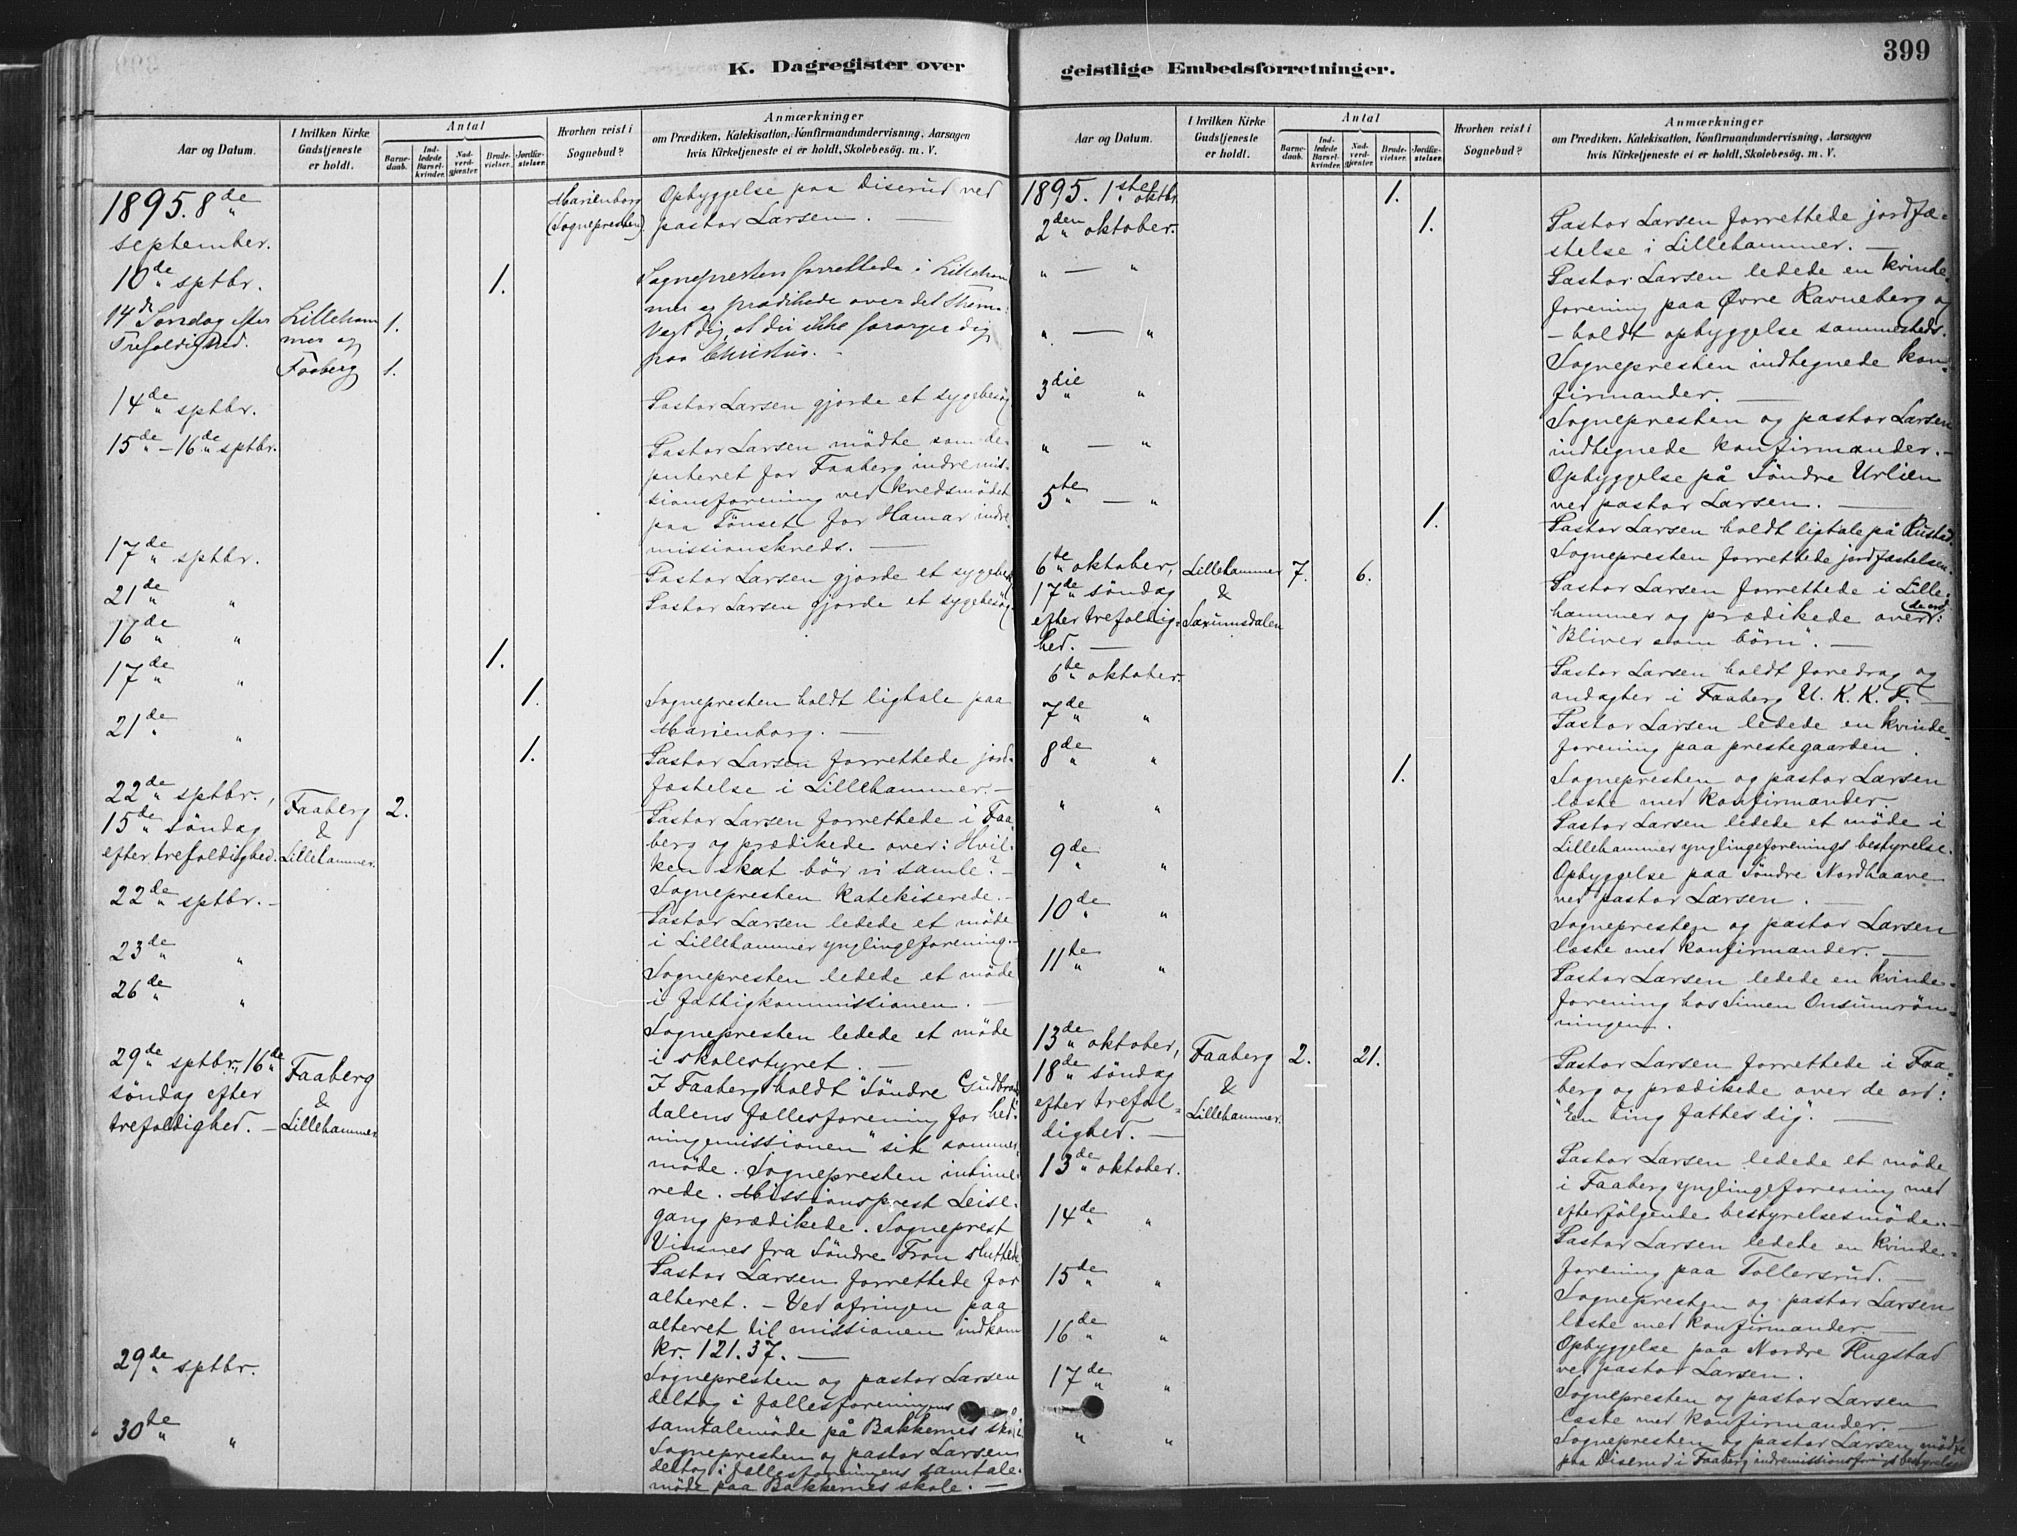 K. Dagregister over
geistlige Embedsforretninger.
399
Aar og Datum.
I hvilken Kirke
Gudstjeneste
er holdt.
Antal
Barne-
daab.
Ind-
ledede
Barsel-
kvinder.
Nad-
verd-
gjæster.
Brude-
vielser.
Jordfæ-
stelser.
Hvorhen reist i
Sognebud?
Anmærkninger
om Prædiken, Katekisation, Konfirmandundervisning, Aarsagen
hvis Kirketjeneste ei er holdt, Skolebesög. m. V.
1895. 8de
september.
Marienborg
(Sognepresten)
Opbyggelse paa Diserud ved
pastor Larsen. —
10de sptbr.
1.
14de Søndag efter
Trefoldighed.
Lilleham
mer og
Faaberg
1.
1.
Sognepresten forrettede i Lilleham
mer og prædikede over det Them:
Vogt dig, at du ikke forarger dig
paa Christus. —
14de sptbr.
Pastor Larsen gjorde et sygebesøg
15de – 16de sptbr.
Pastor Larsen mødte som de-
puteret for Faaberg indremis-
sionsforening ved kredsmødet
paa Tønset for Hamar indre-
missionskreds. —
17de sptbr.
Pastor Larsen gjorde et sygebesøg
21de " "
Pastor Larsen gjorde et sygebesøg
16de " "
1.
17de " "
1.
Sognepresten holdt ligtale paa
Marienborg. —
21de " "
1.
Pastor Larsen forrettede jord-
fæstelse i Lillehammer. —
22de sptbr.,
15de søndag
efter trefoldighed.
Faaberg
&
Lillehammer.
2.
Pastor Larsen forrettede i Faa
berg og prædikede over: Hvil-
ken skat bør vi samle? —
Sognepresten katekiserede. —
22de sptbr. —
Pastor Larsen ledede et møde
i Lillehammer ynglingeforening. —
23de " "
Sognepresten ledede et møde
i fattigkommissionen. —
26de " "
Sognepresten ledede et møde
i skolestyret. —
29de sptbr., 16de
søndag efter
trefoldighed. —
Faaberg
&
Lillehammer
I Faaberg holdt "Søndre Gudbrands
dalens fællesforening for hed-
ningemissionen" sit sommer-
møde. Sognepresten intime-
rede. Missionsprest Leisl-
gang prædikede. Sogneprest
Vinsnes fra Søndre Fron sluttede
Pastor Larsen forrettede for
alteret. – Ved ofringen paa
alteret til missionen indkom
kr. 121.37. —
29de sptbr.
Sognepresten og pastor Larsen
deltog i fællesforeningens
samtalemøde på Bakkernes skole.
30de " "
Sognepresten og pastor Larsen
deltog i fællesforeningens samtale-
møde paa Bakkernes skole. —
Aar og Datum.
I hvilken Kirke
Gudstjeneste
er holdt.
Antal
Barne-
daab.
Ind-
ledede
Barsel-
kvinder.
Nad-
verd-
gjæster.
Brude-
vielser.
Jordfæ-
stelser.
Hvorhen reist i
Sognebud?
Anmærkninger
om Prædiken, Katekisation, Konfirmandundervisning, Aarsagen
hvis Kirketjeneste ei er holdt, Skolebesög. m. V.
1895. 1ste oktbr.
1.
2den oktober.
1.
Pastor Larsen forrettede jordfæ-
stelse i Lillehammer. —
" — "
Pastor Larsen ledede en kvinde-
forening paa Øvre Ravneberg og
– holdt opbyggelse sammesteds.
" — "
Sognepresten indtegnede kon-
firmander. —
3die " "
Sognepresten og pastor Larsen
indtegnede konfirmander. —
" — "
Opbyggelse på Søndre Urlien
ved pastor Larsen. —
5te " — "
1.
Pastor Larsen holdt ligtale på Rustad.
Sognepresten forrettede jordfæstelsen.
6te oktober,
17de søndag
efter trefoldig-
hed. —
Lillehammer
&
Saxumsdalen
7.
6.
Pastor Larsen forrettede i Lille-
hammer og prædikede over de ord:
"Bliver som børn". —
6te oktober.
Pastor Larsen holdt foredrag og
andagter i Faaberg U. K. K. F. —
7de " "
Pastor Larsen ledede en kvinde-
forening paa prestegaarden.
8de " "
1.
Sognepresten og pastor Larsen
læste med konfirmander.
" "
Pastor Larsen ledede et møde i
Lillehammer ynglingeforenings bestyrelse.
9de " "
Opbyggelse paa Søndre Nordhaave
ved pastor Larsen. —
10de " "
Sognepresten og pastor Larsen
læste med konfirmander. —
11te " "
Pastor Larsen ledede en kvinde-
forening hos Simen Onsumrøn-
ningen.
13de oktober,
18de søndag
efter trefol-
dighed. —
Faaberg
&
Lillehammer.
2.
21.
Pastor Larsen forrettede i Faa-
berg og prædikede over de ord:
"En ting fattes dig". —
13de oktober.
Pastor Larsen ledede et møde
i Faaberg ynglingeforening med
efterfølgende bestyrelsesmøde. —
14de " "
Pastor Larsen ledede en kvinde-
forening paa Tollersrud. —
15de " "
Sognepresten og pastor Larsen
læste med konfirmander. —
16de " "
Opbyggelse paa Nordre Flugstad
ved pastor Larsen.
17de " "
Sognepresten og pastor Larsen
læste med konfirmander. —
" "
Sognepresten og pastor Larsen mødte
paa Diserud i Faaberg indremissionsforenings bestyrelse